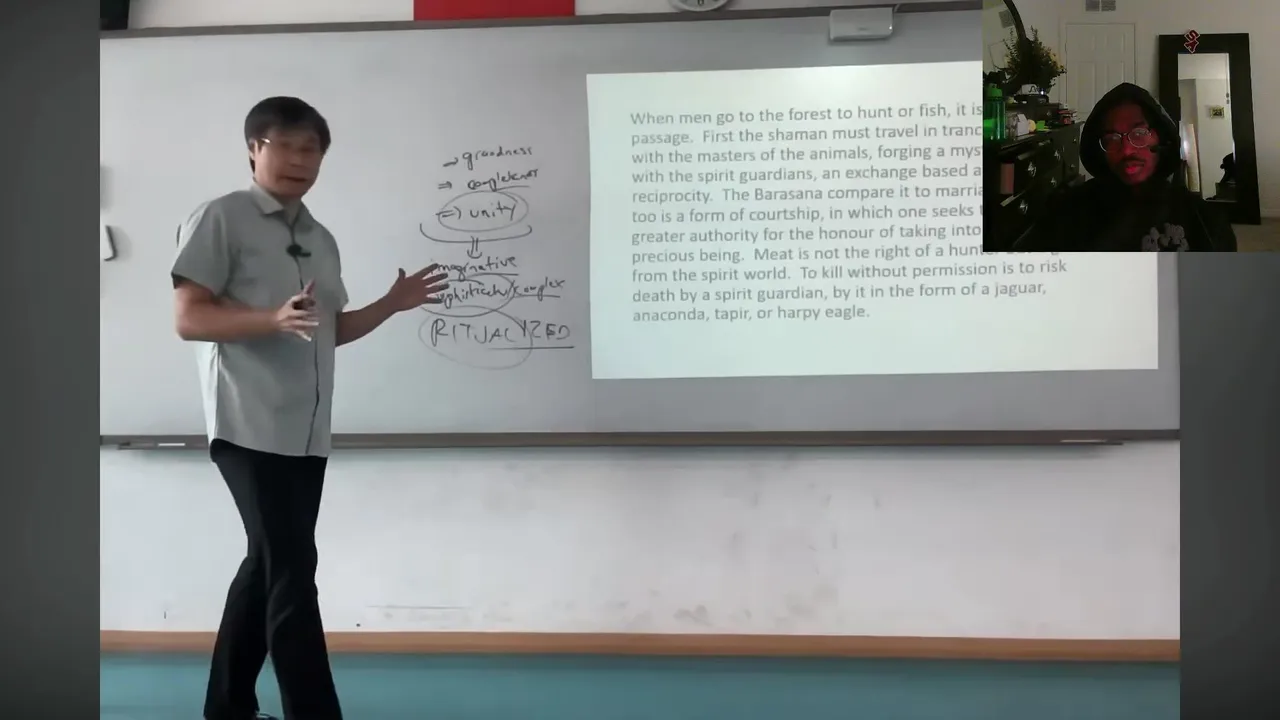 → grandness
⇒ completeness
⇒ unity
⇓
imaginative
sophisticated/complex
RITUALIZED
When men go to the forest to hunt or fish, it is
passage. First the shaman must travel in tranc
with the masters of the animals, forging a mys
with the spirit guardians, an exchange based a
reciprocity. The Barasana compare it to marria
too is a form of courtship, in which one seeks t
greater authority for the honour of taking into
precious being. Meat is not the right of a hunt
from the spirit world. To kill without permission is to risk
death by a spirit guardian, by it in the form of a jaguar,
anaconda, tapir, or harpy eagle.